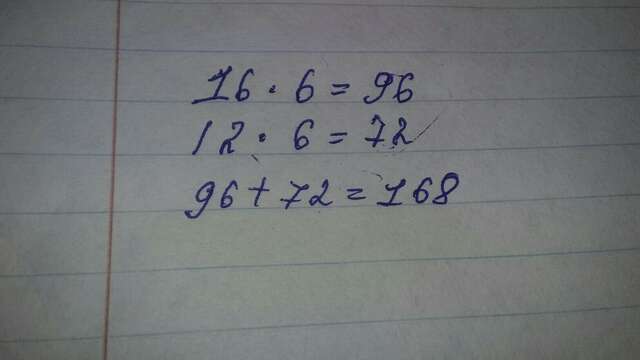 16 · 6 = 96
12 · 6 = 72
96 + 72 = 168